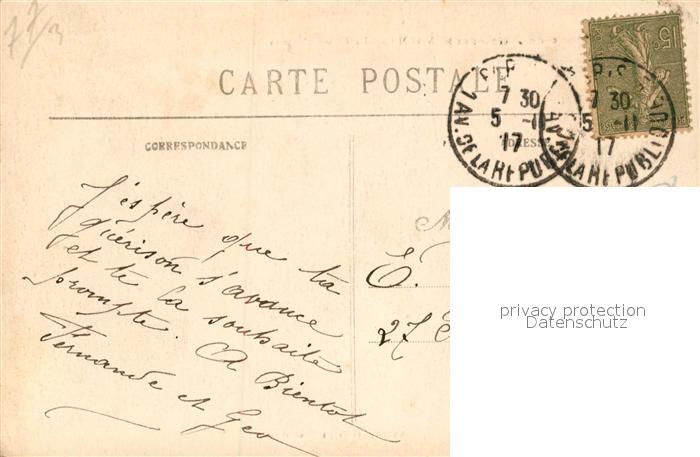 77/3
CARTE POSTALE
15c
7 30
5 -11
17
AV. DE LA REPUBLIQUE
7 30
5 -11
17
AV. DE LA REPUBLIQUE
CORRESPONDANCE
ADRESSE
J'espère que ta
guérison s'avance
et te la souhaite
prompte. A Bientot
Fernande et Geo
M
E.
27
privacy protection
Datenschutz